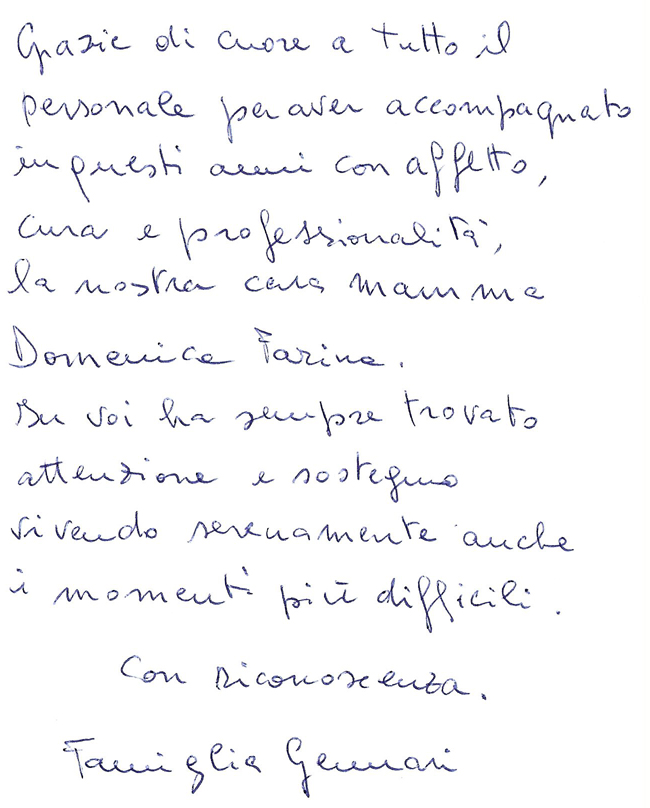 Grazie di cuore a tutto il
personale per aver accompagnato
in questi anni con affetto,
cura e professionalità,
la nostra cara mamma
Domenica Farina.
In voi ha sempre trovato
attenzione e sostegno
vivendo serenamente anche
i momenti più difficili.
Con riconoscenza.
Famiglia Gennari